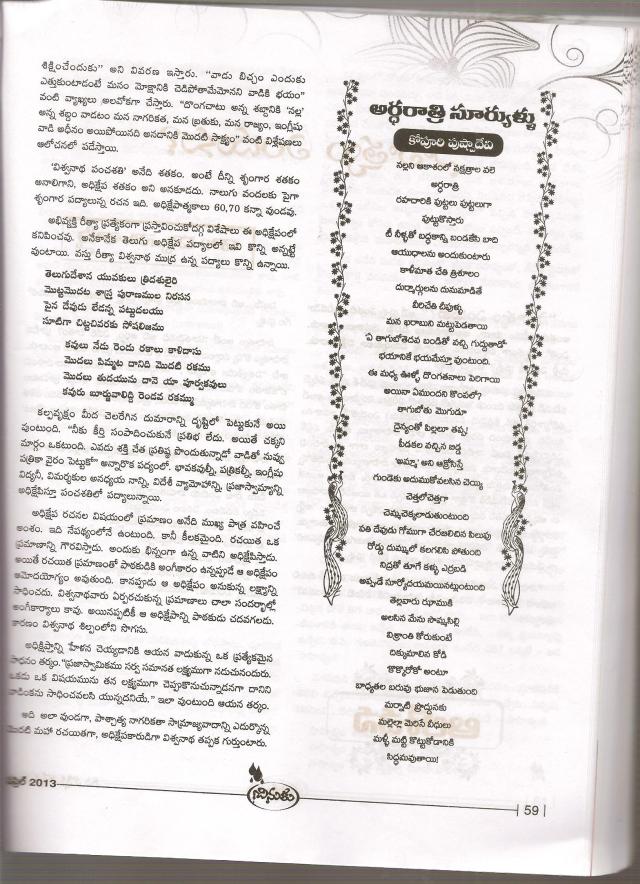 శిక్షించేందుకు" అని వివరణ ఇస్తారు. "వాడు బిచ్చం ఎందుకు
ఎత్తుకుంటాడంటే మనం మోక్షానికి చెడిపోతామేమోనని వాడికి భయం"
వంటి వ్యాఖ్యలు అలవోకగా చేస్తారు. "దొంగచాటు అన్న శబ్దానికి 'నల్ల'
అన్న శబ్దం వాడటం మన నాగరికత, మన బ్రతుకు, మన రాజ్యం, ఇంగ్లీషు
వాడి అధీనం అయిపోయినది అనడానికి మొదటి సాక్ష్యం" వంటి విశ్లేషణలు
ఆలోచనలో పడేస్తాయి.
'విశ్వనాథ పంచశతి' అనేది శతకం. అంటే దీన్ని శృంగార శతకం
అనాలిగాని, అధిక్షేప శతకం అని అనకూడదు. నాలుగు వందలకు పైగా
శృంగార పద్యాలున్న రచన ఇది. అధిక్షేపాత్మకాలు 60,70 కన్నా వుండవు.
అభివ్యక్తి రీత్యా ప్రత్యేకంగా ప్రస్తావించుకోదగ్గ విశేషాలు ఈ అధిక్షేపంలో
కనిపించవు. అనేకానేక తెలుగు అధిక్షేప పద్యాలలో ఇవి కొన్ని అన్నట్టే
వుంటాయి. వస్తు రీత్యా విశ్వనాథ ముద్ర ఉన్న పద్యాలు కొన్ని ఉన్నాయి.
తెలుగుదేశాన యువకులు త్రిదశులైరి
మొట్టమొదట శాస్త్ర పురాణముల నిరసన
పైన దేవుడు లేడన్న పట్టుదలయు
సూటిగా చిట్టచివరకు సోషలిజము
కవులు నేడు రెండు రకాలు కాళిదాసు
మొదలు పిమ్మట దానిది మొదటి రకము
మొదలు తుదయును దానె యా పూర్వకవులు
కవురు బూర్జువాలిద్ది రెండవ రకమ్ము
కల్పవృక్షం మీద చెలరేగిన దుమారాన్ని దృష్టిలో పెట్టుకునే అయి
వుంటుంది, "నీకు కీర్తి సంపాదించుకునే ప్రతిభ లేదు. అయితే చక్కని
మార్గం ఒకటుంది. ఎవడు శక్తి చేత ప్రతిష్ఠ పొందుతున్నాడో వాడితో నువ్వు
పత్రికా వైరం పెట్టుకో" అన్నారొక పద్యంలో. భావకవుల్నీ, పత్రికల్నీ, ఇంగ్లీషు
విద్యనీ, విమర్శకుల అనధ్యయ నాన్ని, విదేశీ వ్యామోహాన్ని, ప్రజాస్వామ్యాన్ని
అధిక్షేపిస్తూ పంచశతిలో పద్యాలున్నాయి.
అధిక్షేప రచనల విషయంలో ప్రమాణం అనేది ముఖ్య పాత్ర వహించే
అంశం. ఇది నేపథ్యంలోనే ఉంటుంది. కానీ కీలకమైంది. రచయిత ఒక
ప్రమాణాన్ని గౌరవిస్తాడు. అందుకు భిన్నంగా ఉన్న వాటిని అధిక్షేపిస్తాడు.
అయితే రచయిత ప్రమాణంతో పాఠకుడికి అంగీకారం ఉన్నప్పుడే ఆ అధిక్షేపం
ఆమోదయోగ్యం అవుతుంది. కానప్పుడు ఆ అధిక్షేపం అనుకున్న లక్ష్యాన్ని
సాధించదు. విశ్వనాథవారు ఏర్పరచుకున్న ప్రమాణాలు చాలా సందర్భాల్లో
అంగీకార్యాలు కావు. అయినప్పటికీ ఆ అధిక్షేపాన్ని పాఠకుడు చదవగలడు.
కారణం విశ్వనాథ శిల్పంలోని సొగసు.
అధిక్షిప్తాన్ని హేళన చెయ్యడానికి ఆయన వాడుకున్న ఒక ప్రత్యేకమైన
సాధనం తర్కం. "ప్రజాస్వామికము సర్వ సమానత లక్ష్యముగా నడుచునందురు.
ఒకడు ఒక విషయమును తన లక్ష్యముగా చెప్పుకొనుచున్నాడనగా దానిని
వాడింకను సాధించవలసి యున్నదనియే." ఇలా వుంటుంది ఆయన తర్కం.
అది అలా వుండగా, పాశ్చాత్య నాగరికతా సామ్రాజ్యవాదాన్ని ఎదుర్కొన్న
మొదటి మహా రచయితగా, అధిక్షేపకారుడిగా విశ్వనాథ తప్పక గుర్తుంటారు.
అర్ధరాత్రి సూర్యుళ్ళు
కోపూరి పుష్పాదేవి
నల్లని ఆకాశంలో నక్షత్రాల వలె
అర్ధరాత్రి
రహదారికి పుట్టలు పుట్టలుగా
పుట్టుకొస్తారు
టీ నీళ్ళతో బద్ధకాన్ని బండకేసి బాది
ఆయుధాలను అందుకుంటారు
కాళీమాత చేతి త్రిశూలం
దుర్మార్గులను దునుమాడితే
వీరిచేతి చీపుళ్ళు
మన ఖరాబుని మట్టుపెడతాయి
'ఏ తాగుబోతెదవ బండితో వచ్చి గుద్దుతాడో'
భయానికే భయమేస్తూ వుంటుంది.
ఈ మధ్య ఊళ్ళో దొంగతనాలు పెరిగాయి
అయినా ఏముందని కొంపలో?
తాగుబోతు మొగుడూ
దైన్యంతో పిల్లలూ తప్ప!
పీడకల వచ్చిన బిడ్డ
'అమ్మా' అని ఆక్రోశిస్తే
గుండెకు అదుముకోవలసిన చెయ్యి
చెత్తలోచెత్తగా
చెమ్మచెక్కలాడుతుంటుంది
పతి దేవుడు గోముగా చేరజలిచిన పిలుపు
రోడ్డు దుమ్ములో కలగలిసి పోతుంది
నిద్రతో తూగే కళ్ళు ఎర్రబడి
అప్పుడే సూర్యోదయమయినట్లుంటుంది
తెల్లవారు ఝాముకి
అలసిన మేను సొమ్మసిల్లి
విశ్రాంతి కోరుకుంటే
దిక్కుమాలిన కోడి
'కొక్కొరోకో' అంటూ
బాధ్యతల బరువు భుజాన పెడుతుంది
మర్నాటి ప్రొద్దునకు
మల్లెల్లా మెరిసే వీధులు
మళ్ళీ మట్టి కొట్టుకోడానికి
సిద్ధమవుతాయి!
ఏప్రిల్ 2013
చినుకు
59